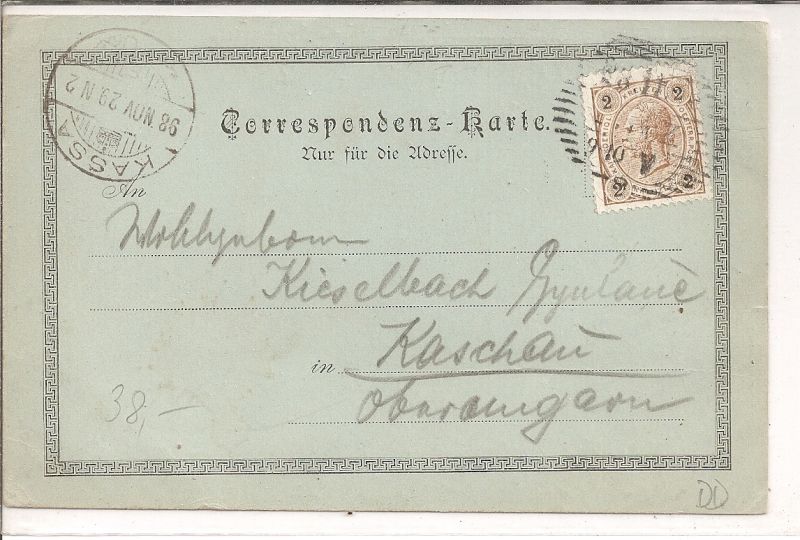 KASSA
98 NOV 29 N 2
2 2
2 2
Correspondenz-Karte.
Nur für die Adresse.
An
Wohlgeborn
Kieselbach Gyuláné
in Kaschau
Oberungarn
38,-
DD